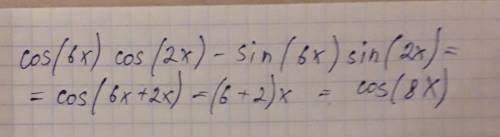 cos(6x) cos(2x) - sin(6x) sin(2x) =
= cos(6x+2x) = (6+2)x = cos(8x)